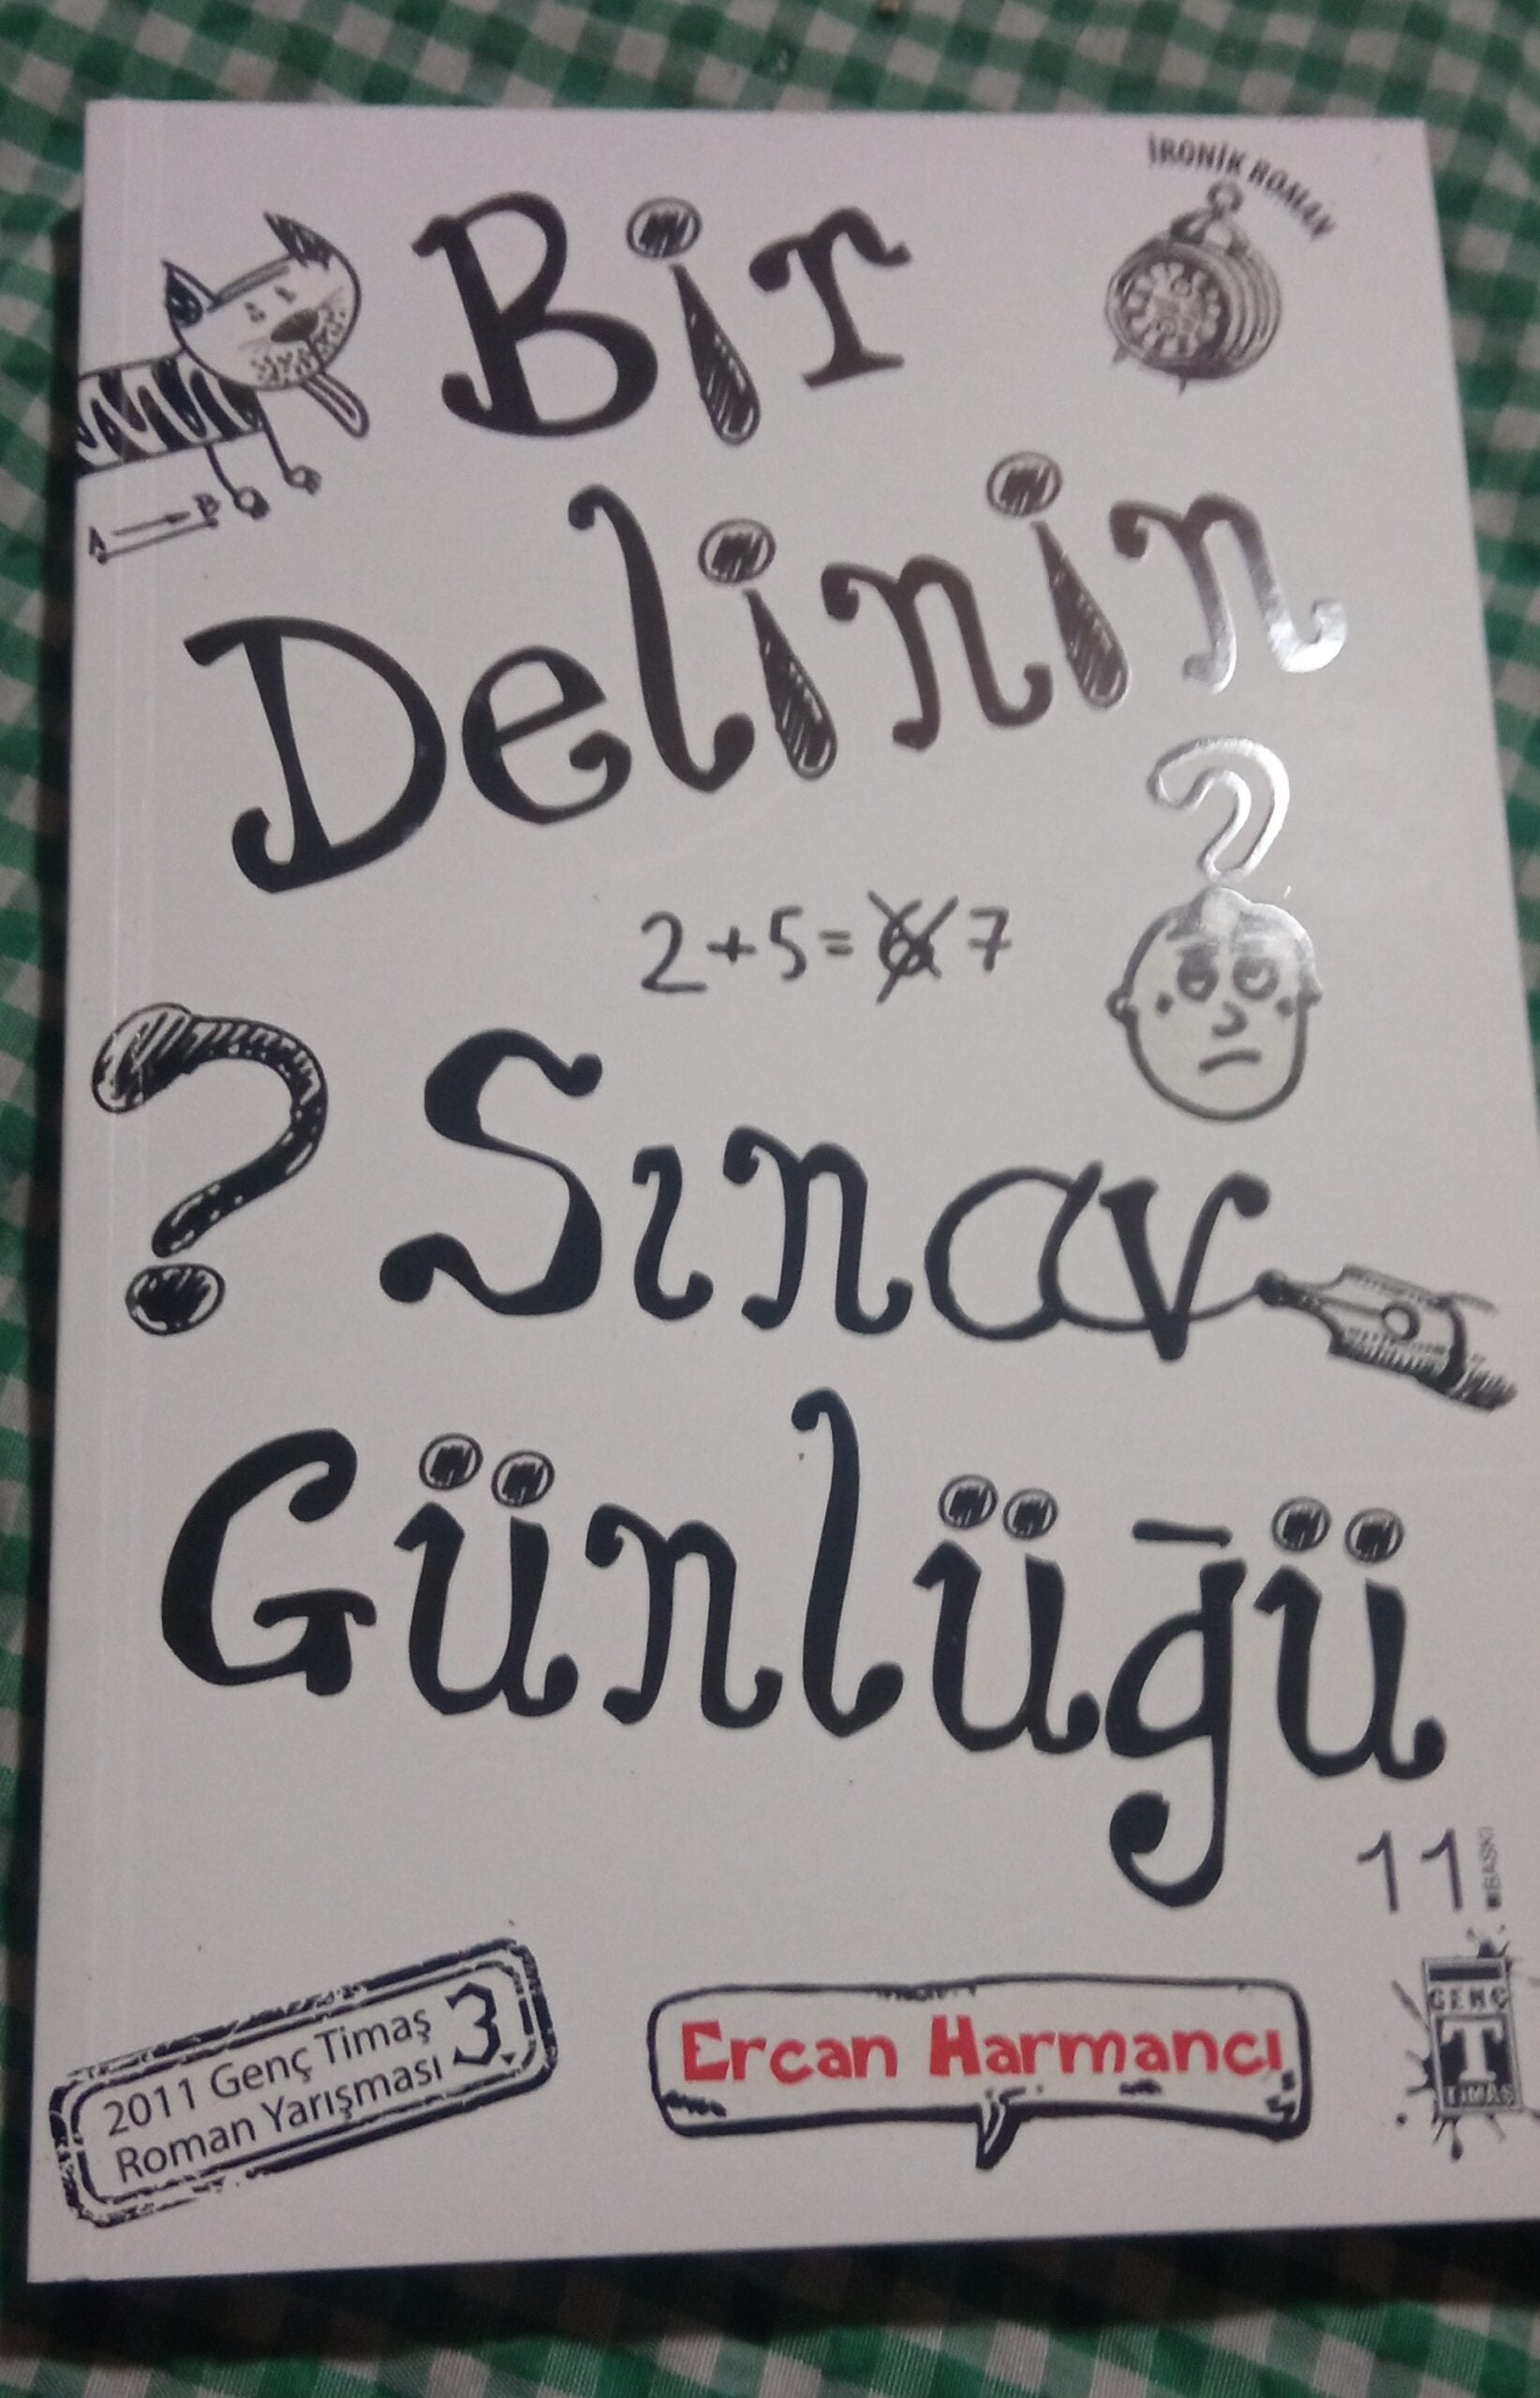 İRONİK ROMAN
Bir
Delinin
A B
2+5= 6 7
Sınav
Günlüğü
11. BASKI
2011 Genç Timaş
Roman Yarışması 3.
Ercan Harmancı
GENÇ
T
TİMAŞ